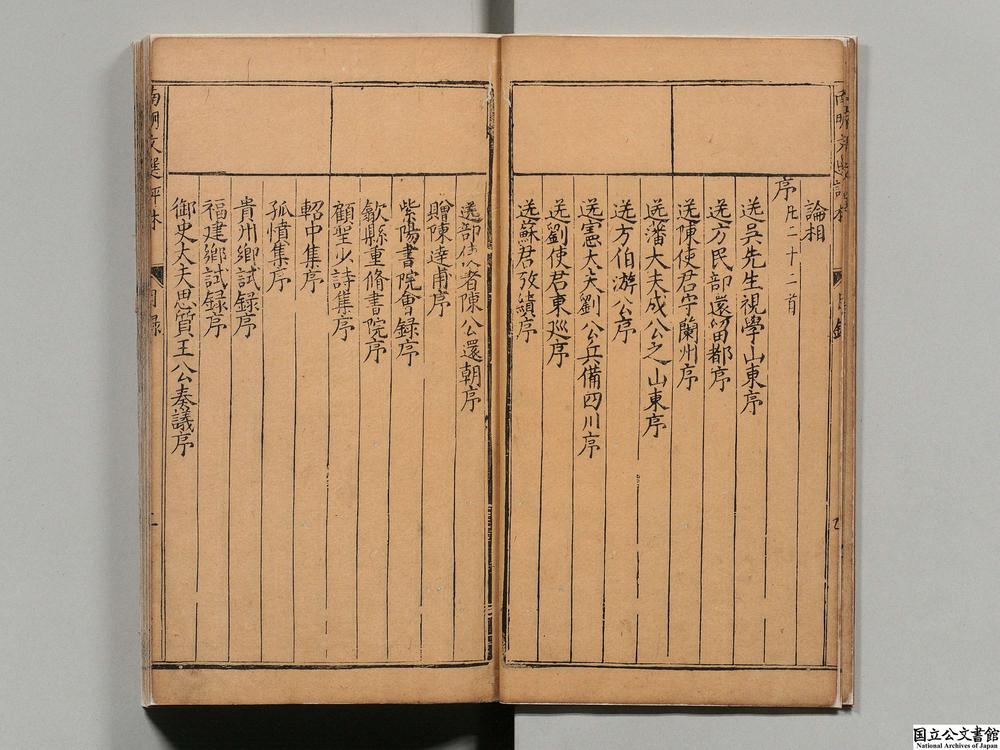 論相
序凡二十二首
送吳先生視學山東序
送方民部還留都序
送陳使君守蘭州序
送潘大夫成公之山東序
送方伯游公序
送憲大夫劉公兵備四川序
送劉使君東廵序
送蘇君攷績序
送部使者陳公還朝序
贈陳達甫序
紫陽書院會録序
歙縣重脩書院序
顧聖少詩集序
軺中集序
孤憤集序
貴州鄉試録序
福建鄉試録序
御史大夫思質王公奏議序
南明文選評林
目録
二
国立公文書館
National Archives of Japan